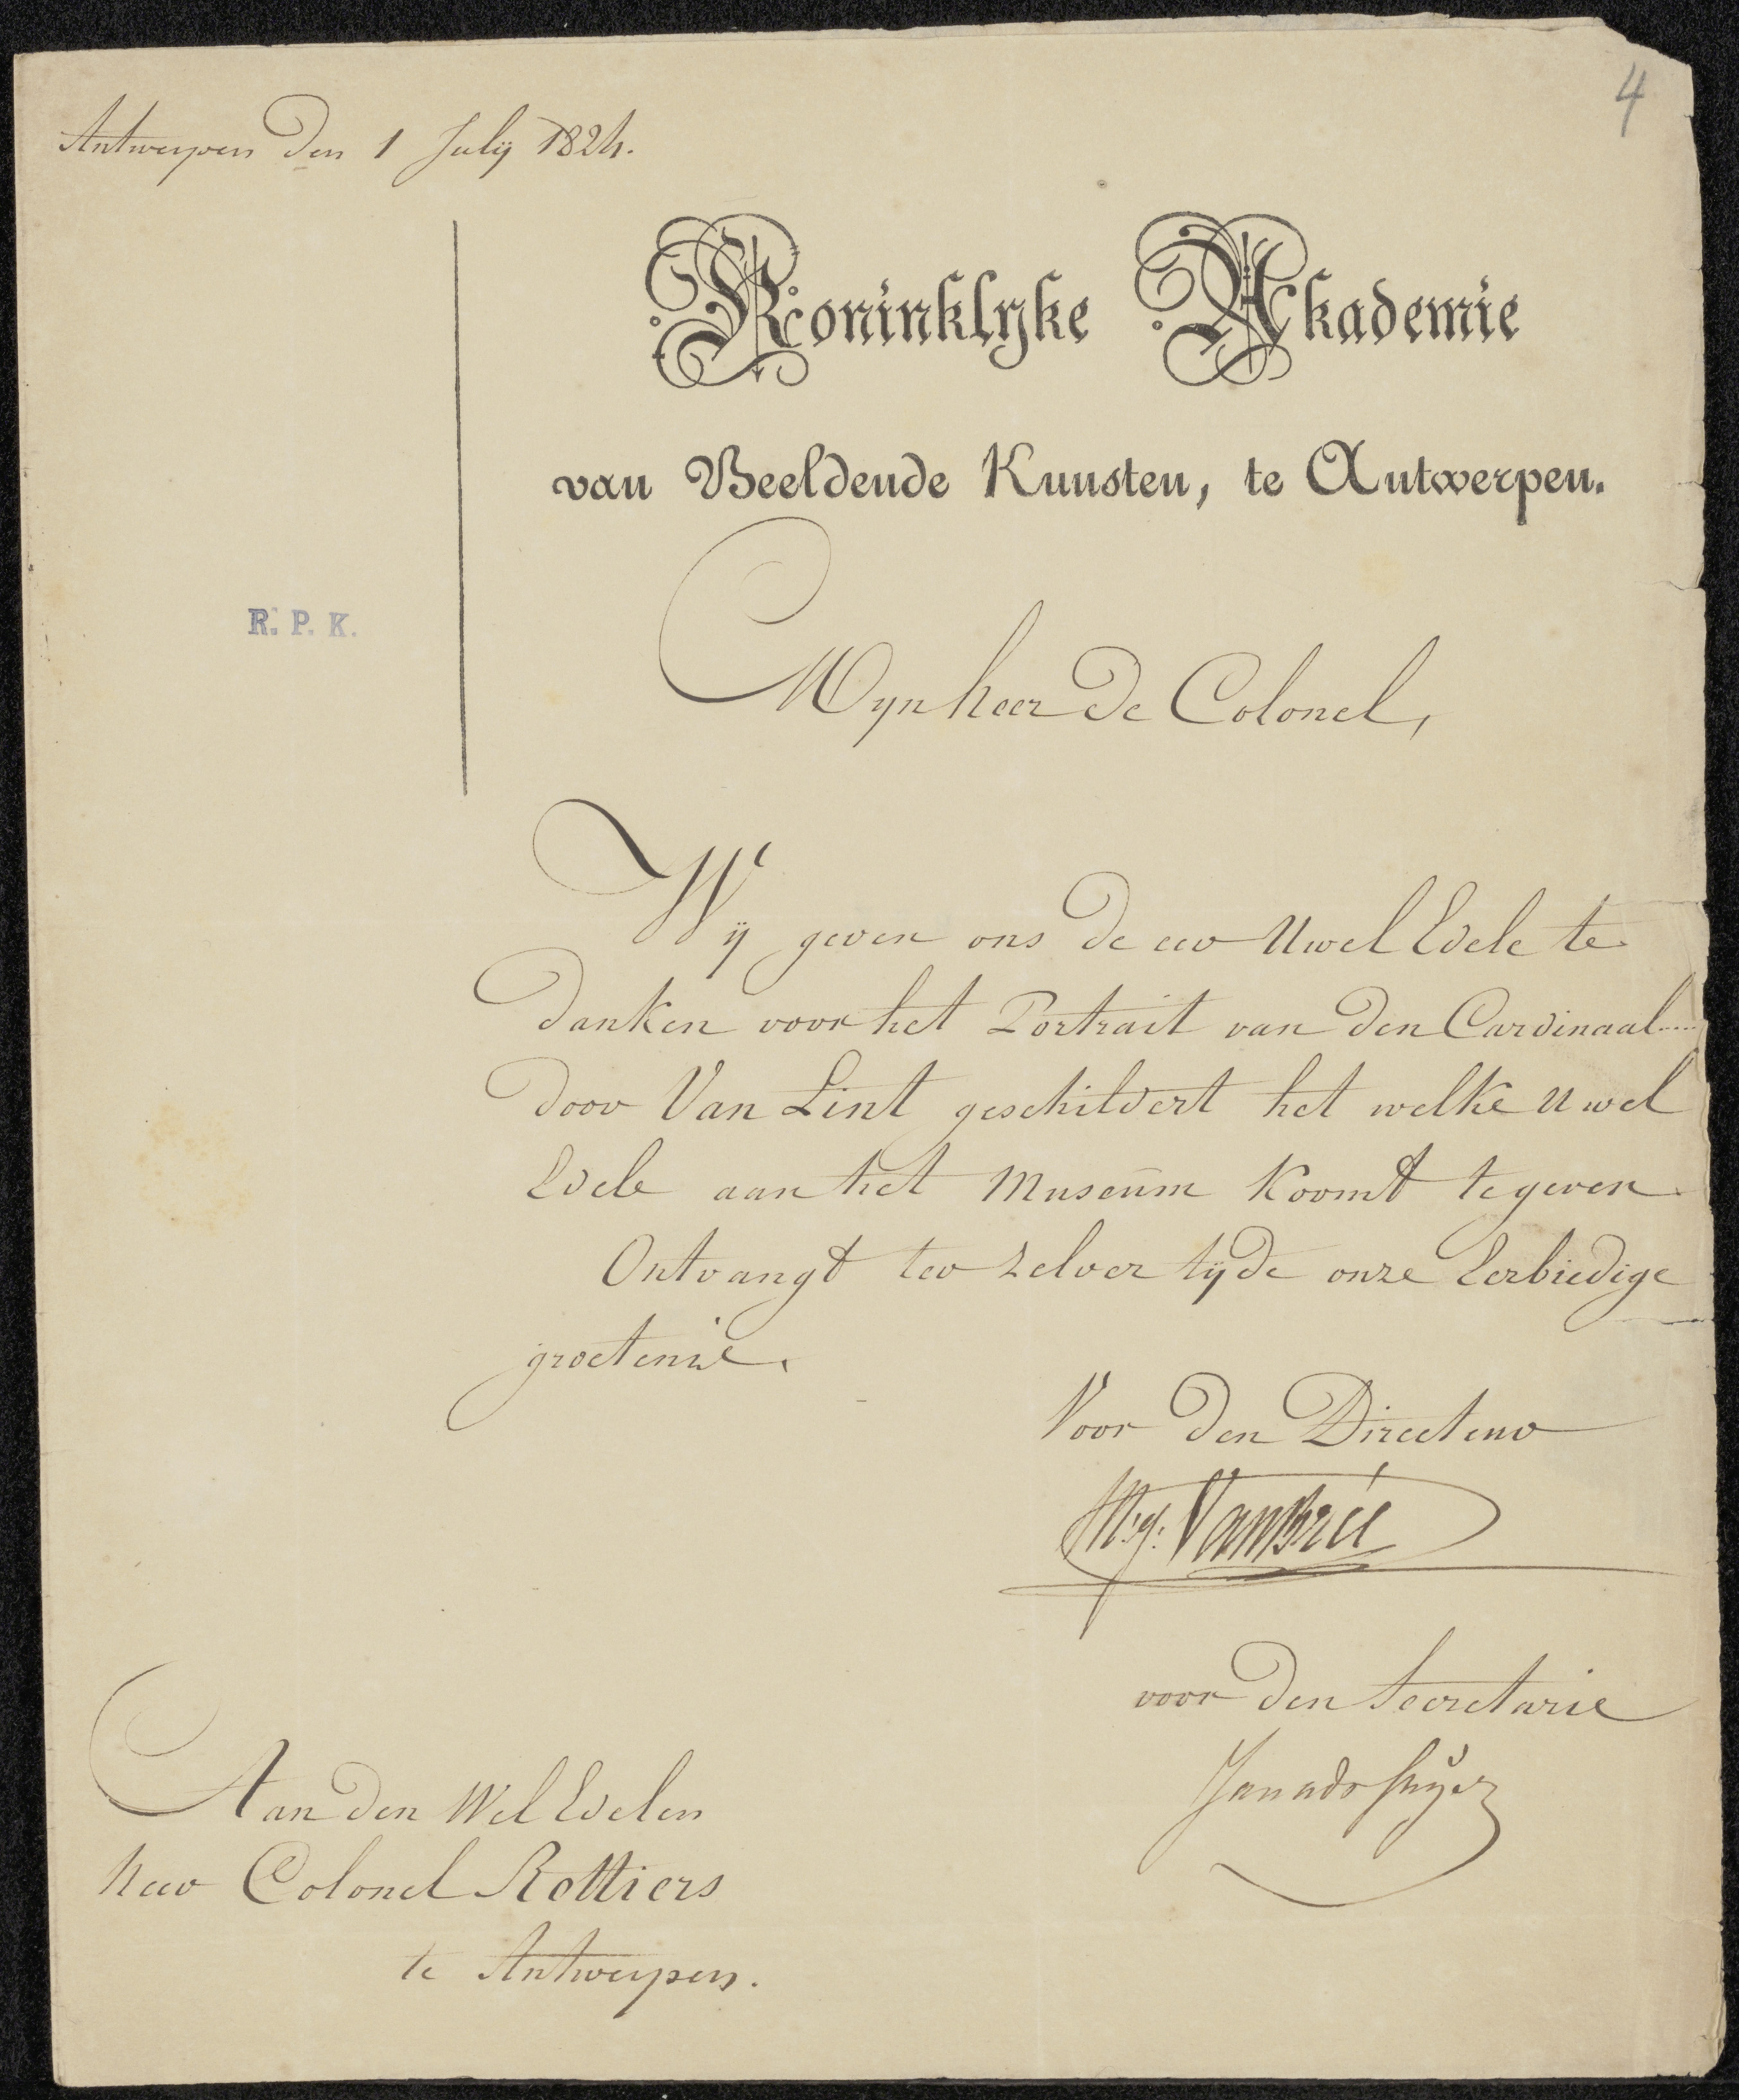 4
Antwerpen den 1 July 1824.
Koninklyke Akademie
van Beeldende Kunsten, te Antwerpen.
R. P. K.
Mynheer de Colonel,
Wij geven ons de eer Uwel Edele te
danken voor het Portrait van den Cardinaal....
door Van Lint geschildert het welke Uwel
Edele aan het Museum koomt te geven
Ontvangt ter zelver tijde onze Eerbiedige
groetenis.
Voor den Directeur
M.y. Van Brée
voor den Secretarie
Aan den Wel Edelen
heer Colonel Rottiers
te Antwerpen.